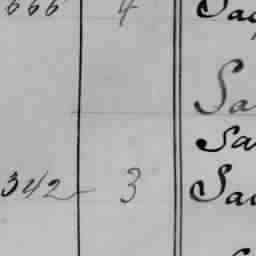 666 4 Sa
Sa
Sa
342 3 Sa